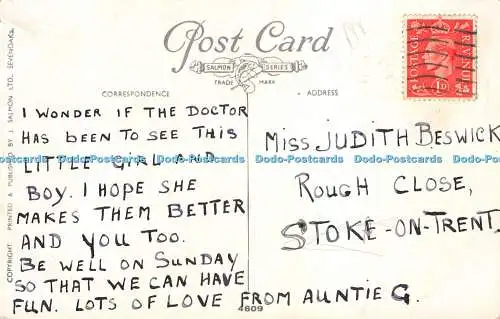 Post Card
SALMON SERIES
TRADE MARK
CORRESPONDENCE
ADDRESS
POSTAGE
REVENUE
1D
COPYRIGHT. PRINTED & PUBLISHED BY J. SALMON LTD., SEVENOAKS
I WONDER IF THE DOCTOR
HAS BEEN TO SEE THIS
LITTLE GIRL AND
BOY. I HOPE SHE
MAKES THEM BETTER
AND YOU TOO.
BE WELL ON SUNDAY
SO THAT WE CAN HAVE
FUN. LOTS OF LOVE FROM AUNTIE G.
MISS JUDITH BESWICK
ROUGH CLOSE,
STOKE-ON-TRENT.
4609
Dodo-Postcards Dodo-Postcards Dodo-Postcards Dodo-Postcards Dodo-Postcards